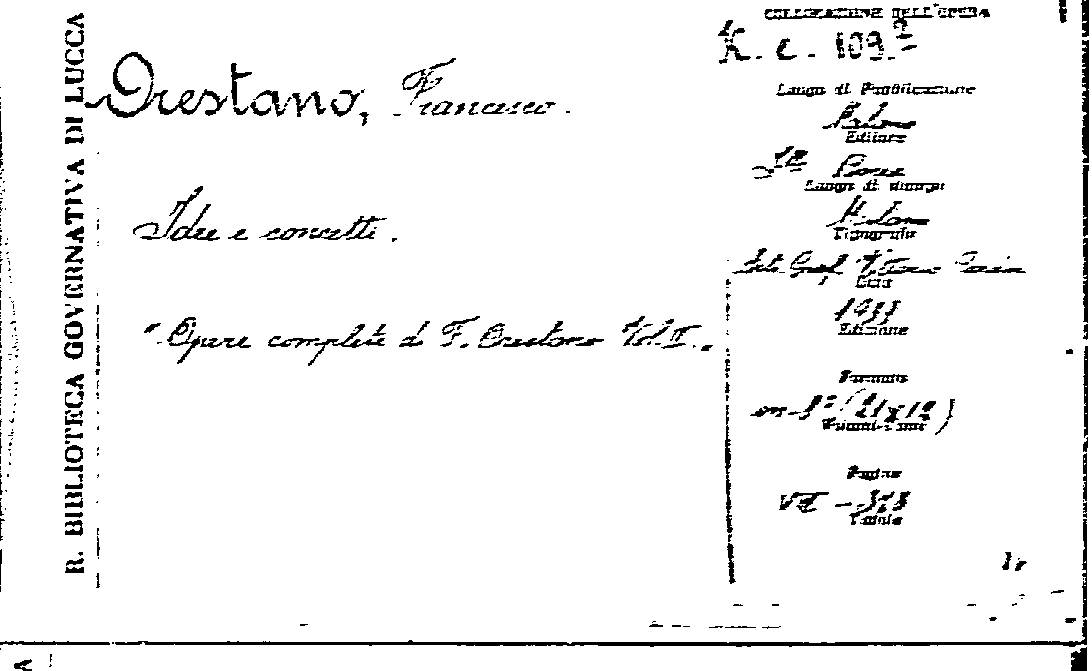 R. BIBLIOTECA GOVERNATIVA DI LUCCA
Orestano, Francesco.
Idee e concetti.
"Opere complete di F. Orestano Vol. II.
COLLOCAZIONE DELL'OPERA
K. c. 109.
Luogo di Pubblicazione
Milano
Editore
Bocca
Luogo di stampa
Milano
Tipografia
Data
Edizione
Formato
in-8°
Pagine
Tavole